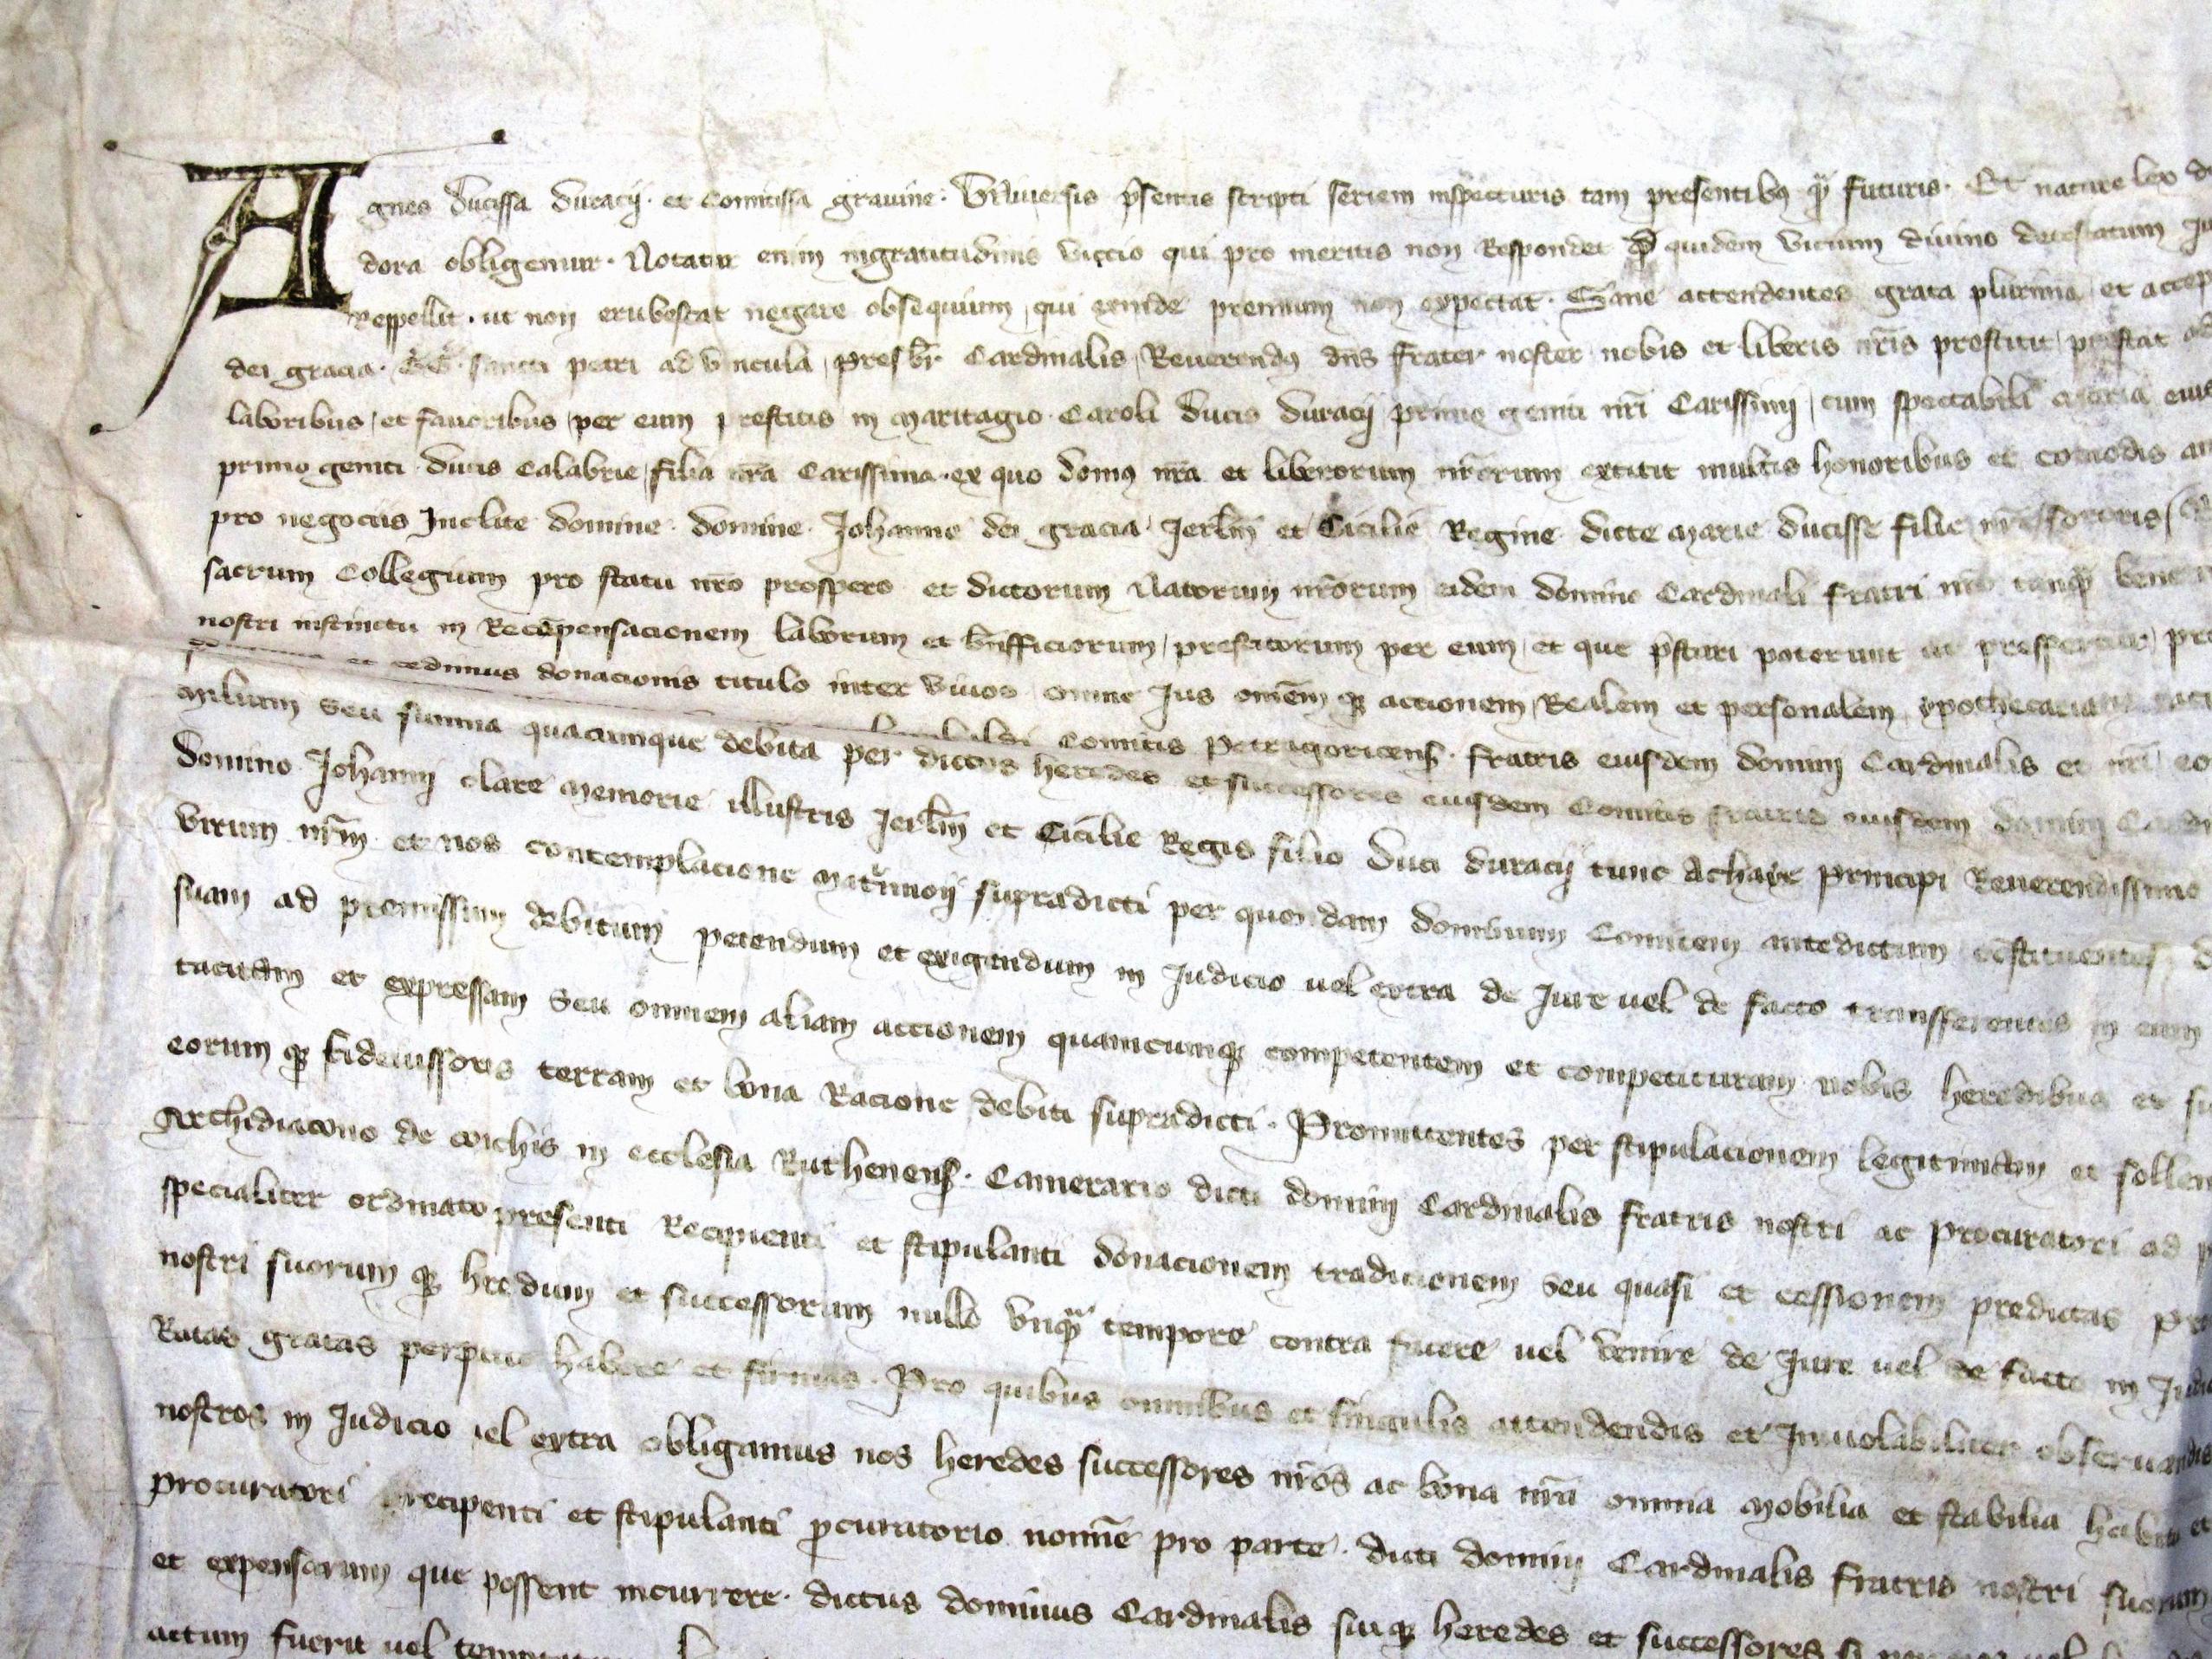 Agnes ducissa duracij. et Comitissa grauine. Vniuersis p̄sentis scripti seriem inspecturis tam presentibꝫ qᷓ futuris. Et nature lex
dora obligemur. Notatur enim ingratitudinis viccio qui pro meritis non Respondet qd̄ quidem vicium diuino detestatum
reppellit. ut non erubescat negare obsequium, qui exinde premium non expectat. Sane attendentes grata plurima, et
dei gracia. sancti petri ad vincula, presbr̄ Cardinalis, Reuerendꝫ dn̄s frater noster nobis et liberis nr̄is prestitit, prestat
laboribus, et fauoribus, per eum prestitis in maritagio Caroli ducis duracij primo geniti nr̄i Carissimj, cum spectabili maria
primo geniti ducis Calabrie, filia nr̄a Carissima. ex quo domꝫ nr̄a et liberorum nr̄orum extitit multis honoribus et comodis
pro negociis Inclite domine domine Johanne dei gracia Jerl̄m et Cicilie Regine dicte marie ducisse filie nr̄e sororis
sacrum Collegium pro statu nr̄o prospero et dictorum Natorum nr̄orum eidem domino Cardinali fratri nr̄o tanqᷓ
nostri instinctu in Recōpensacionem laborum et bn̄fficiorum, prestitorum per eum, et que p̄stari poterunt
et cedimus donacionis titulo inter viuos omne Jus om̄em qꝫ actionem, Realem et personalem, ypothecariam
Comitis Petragoricens̄. fratris eiusdem dominj Cardinalis et nr̄i
milium seu summa quacumque debita per dictos heredes et successores eiusdem Comitis fratris eiusdem dominj
domino Johannj clare memorie illustris Jerl̄m et Cicilie Regis filio duci duracij tunc Achaye principi Reuerendissimo
virum nr̄m et nos contemplacione matͥmonij supradicti per quondam dominum Comitem antedictum cōstituentes
suam ad promissum debitum petendum et exigendum in Judicio uel extra de Jure uel de facto transfferentes in eum
tacitam et expressam seu omnem aliam accionem quamcumqꝫ competentem et competituram nobis heredibus et
eorum qꝫ fideiussoris terram et bona Racione debiti supradicti. Promittentes per stipulacionem legitimam et
Archidiacono de conchis in ecclesia Ruthenens̄. Camerario dicti dominj Cardinalis fratris nostri ac procuratori ad
specialiter ordinato presenti Recipienti et stipulanti donacionem tradicionem seu quasi et cessionem predictas
nostri suorum qꝫ hredum et successorum nullo vnqᷓ tempore contra facere uel venire de Jure uel de facto in
Ratas gratas perpetuo habere et firmas. Pro quibus omnibus et singulis attendendis et Inuiolabiliter obseruandis
nostros in Judicio uel extra obligamus nos heredes successores nr̄os ac bona nr̄a omnia mobilia et stabilia habita et
procuratori recipienti et stipulanti ꝓcuratorio nomīe pro parte dicti dominj Cardinalis fratris nostri suorum
et expensarum que possent incurrere. dictus dominus Cardinalis suiqꝫ heredes et successores si
actum fuerit uel